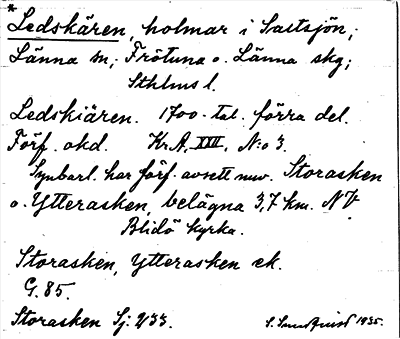 *
Ledskären, holmar i Saltsjön,
Länna sn; Frötuna o. Länna skg;
Sthlms l.
Ledskiären. 1700-tal. förra del.
Förf. okd. Kr.A. XIII, N:o 3.
Synbarl. har förf. avsett nuv. Storasken
o. Ytterasken, belägna 3,7 km. NV
Blidö kyrka.
Storasken, Ytterasken ek.
G. 85.
Storasken Sj. 9/33.
1935.